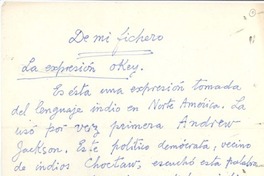 De mi fichero
La expresión okey.
Es éste una expresión tomada
del lenguaje indio en Norte América. La
usó por vez primera Andrew
Jackson. Este político demócrata, vecino
de indios Choctaw, escuchó esta palabra